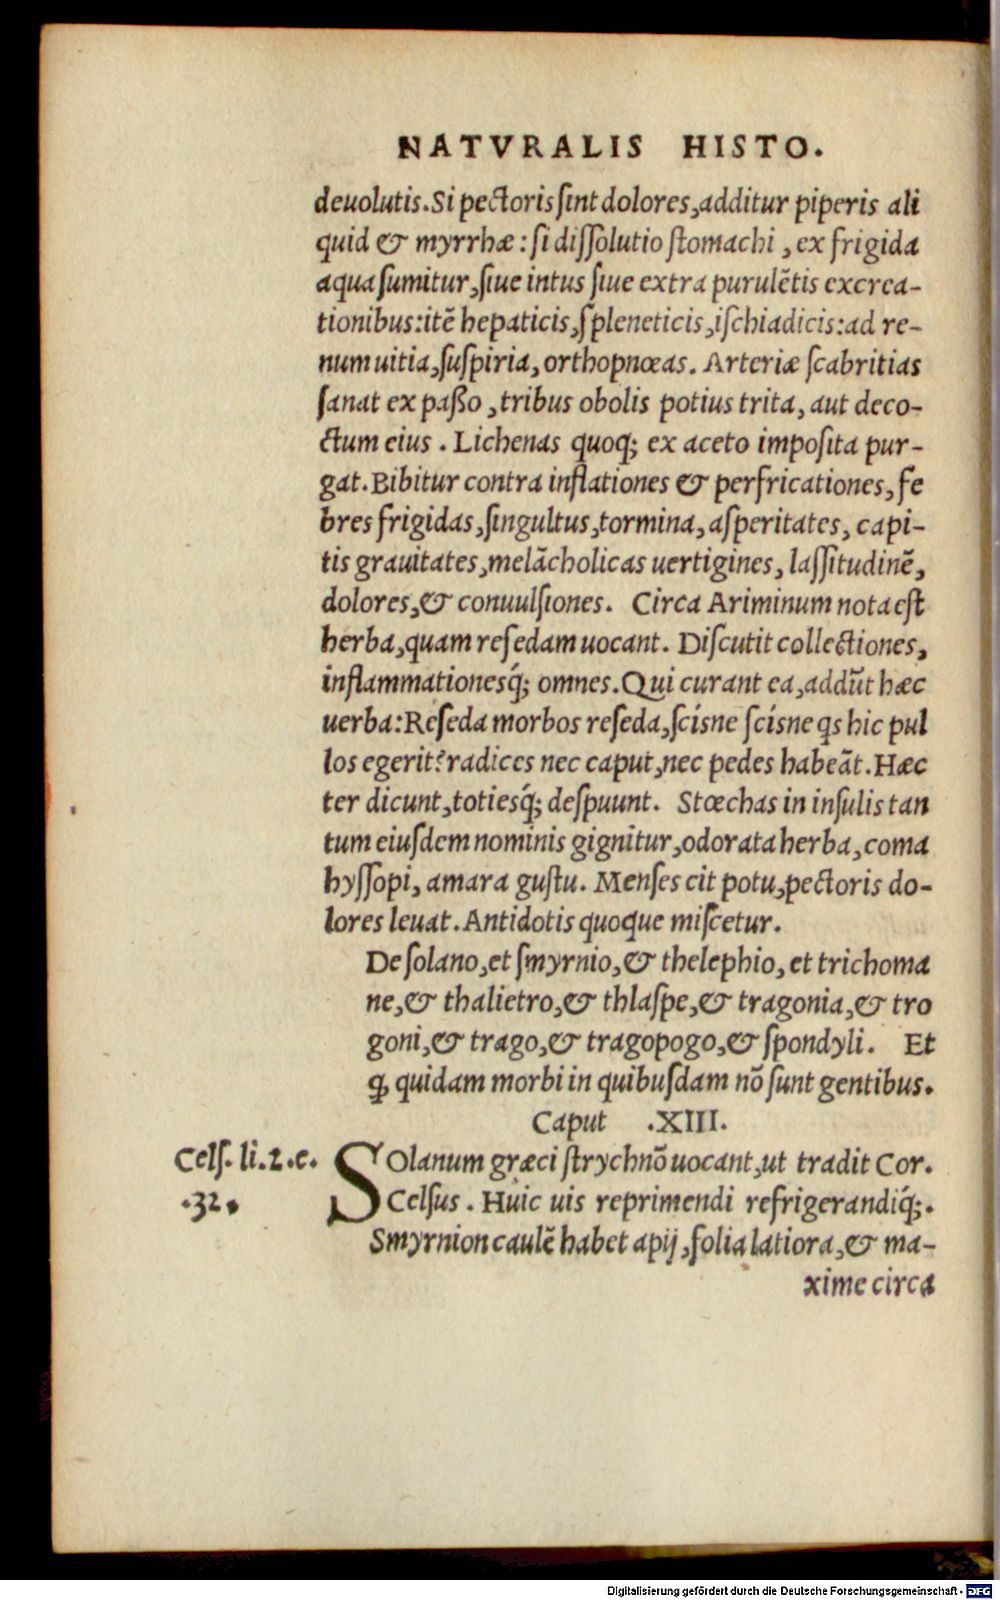 NATVRALIS HISTO.
deuolutis.Si pectoris ſint dolores,additur piperis ali
quid & myrrhæ : ſi diſſolutio ſtomachi , ex frigida
aqua ſumitur,ſiue intus ſiue extra purulẽtis excrea-
tionibus:itẽ hepaticis,ſpleneticis,iſchiadicis:ad re-
num uitia,ſuſpiria, orthopnœas. Arteriæ ſcabritias
ſanat ex paßo , tribus obolis potius trita, aut deco-
ctum eius . Lichenas quoq; ex aceto impoſita pur-
gat.Bibitur contra inflationes & perfricationes, fe
bres frigidas,ſingultus,tormina, aſperitates, capi-
tis grauitates,melãcholicas uertigines, laſſitudinẽ,
dolores,& conuulſiones. Circa Ariminum nota eſt
herba,quam reſedam uocant. Diſcutit collectiones,
inflammationesq́; omnes.Qui curant ea,addũt hæc
uerba:Reſeda morbos reſeda,ſcíſne ſcíſne qs hic pul
los egerit?radices nec caput,nec pedes habeãt.Hæc
ter dicunt,totiesq́; deſpuunt. Stœchas in inſulis tan
tum eiuſdem nominis gignitur,odorata herba,coma
hyſſopi, amara guſtu. Menſes cit potu,pectoris do-
lores leuat.Antidotis quoque miſcetur.
De ſolano,et ſmyrnio,& thelephio, et trichoma
ne,& thalietro,& thlaſpe,& tragonia,& tro
goni,& trago,& tragopogo,& ſpondyli. Et
ꝙ quidam morbi in quibuſdam nõ ſunt gentibus.
Caput .XIII.
Celſ. li.2.c.
.32.
SOlanum græci ſtrychnõ uocant,ut tradit Cor.
Celſus . Huic uis reprimendi refrigerandiq́;.
Smyrnion caulẽ habet apij,folia latiora,& ma-
xime circa
Digitalisierung gefördert durch die Deutsche Forschungsgemeinschaft - DFG